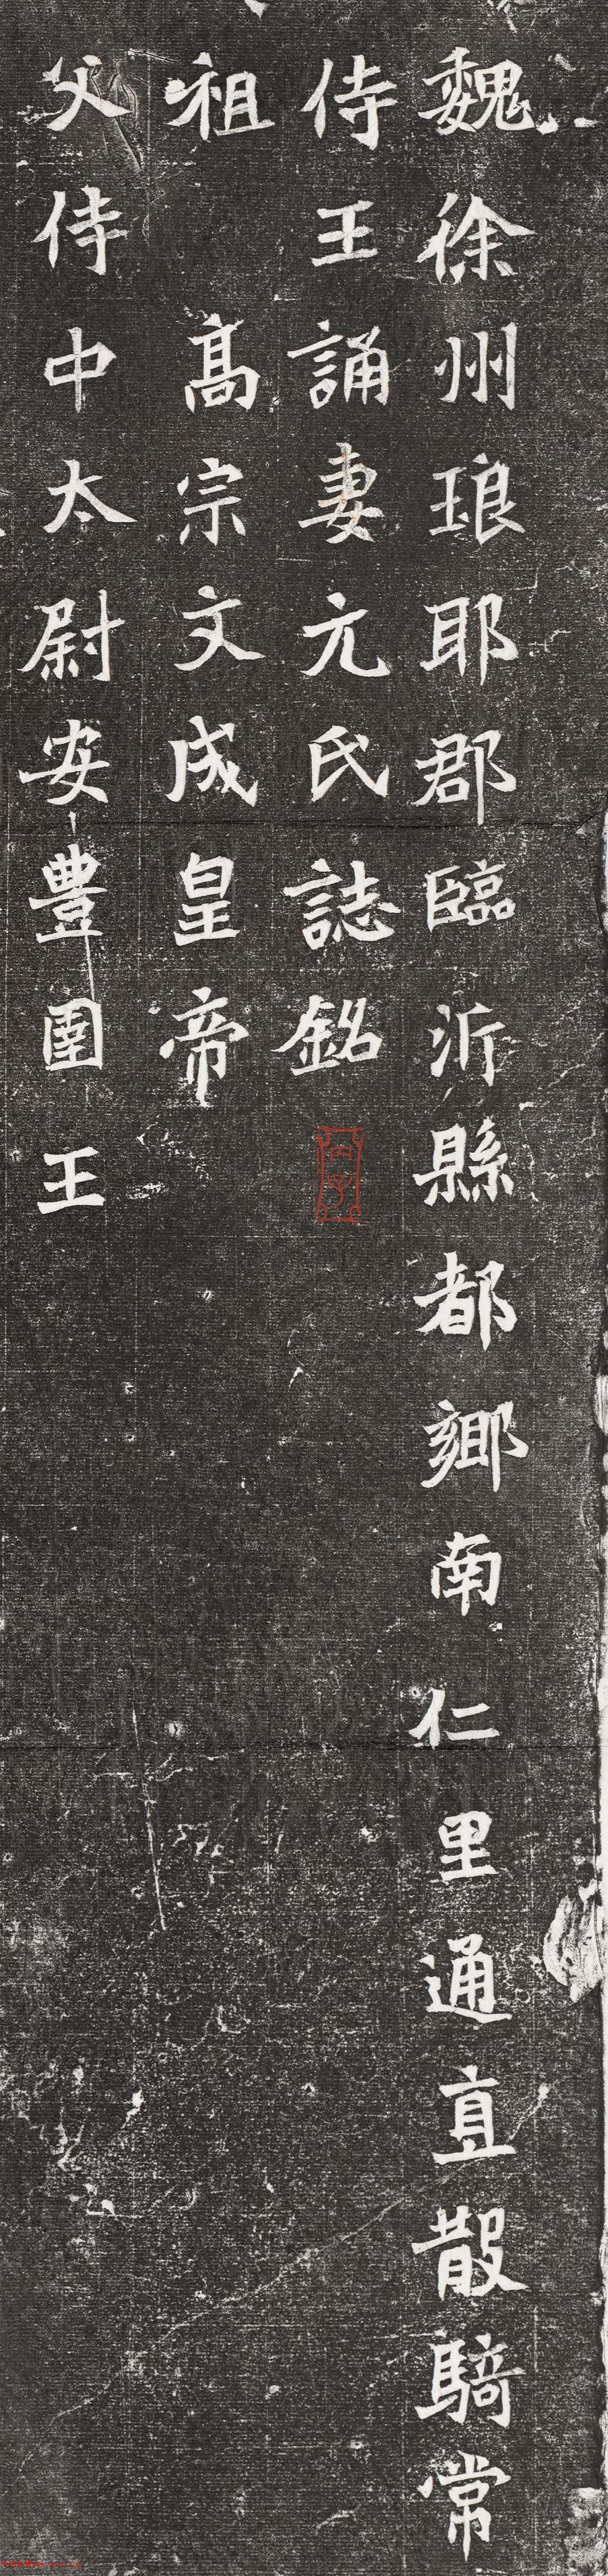 魏徐州琅耶郡臨沂縣都鄉南仁里通直散騎常
侍王誦妻元氏誌銘
祖高宗文成皇帝
父侍中太尉安豐圉王